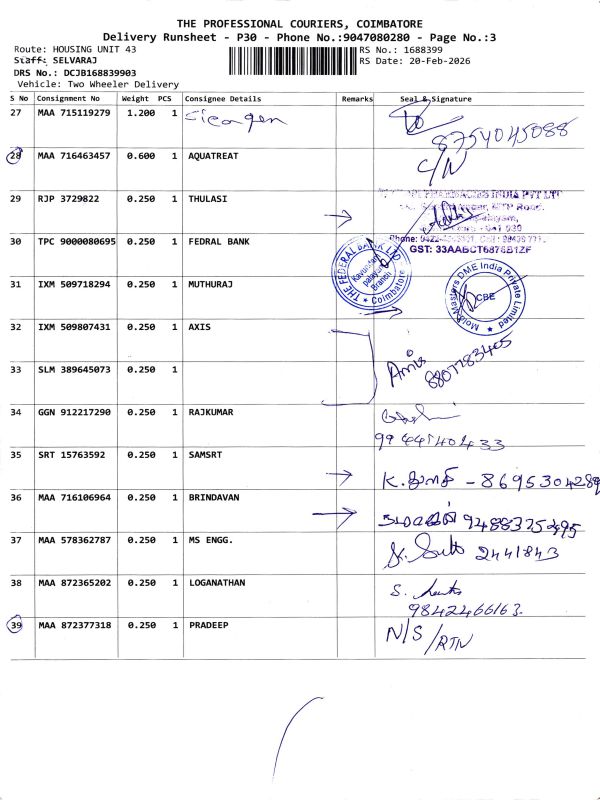 THE PROFESSIONAL COURIERS, COIMBATORE
Delivery Runsheet - P30 - Phone No.:9047080280 - Page No.:3
Route: HOUSING UNIT 43
Staff: SELVARAJ
DRS No.: DCJB168839903
Vehicle: Two Wheeler Delivery
RS No.: 1688399
RS Date: 20-Feb-2026
S No Consignment No Weight PCS Consignee Details Remarks Seal & Signature
27 MAA 715119279 1.200 1 Sicagen
8754045088
28 MAA 716463457 0.600 1 AQUATREAT C/N
29 RJP 3729822 0.250 1 THULASI
INDIA PVT LTD
MTP Road.
GST: 33AABCT6878B1ZF
30 TPC 9000080695 0.250 1 FEDRAL BANK
THE FEDERAL BANK LTD
Kavundam
palayam
Branch
Coimbatore
31 IXM 509718294 0.250 1 MUTHURAJ
Mold-Masters DME India Private Limited
CBE
32 IXM 509807431 0.250 1 AXIS
33 SLM 389645073 0.250 1
34 GGN 912217290 0.250 1 RAJKUMAR
35 SRT 15763592 0.250 1 SAMSRT
க.துளசி - 8695304289
36 MAA 716106964 0.250 1 BRINDAVAN
37 MAA 578362787 0.250 1 MS ENGG.
2441843
38 MAA 872365202 0.250 1 LOGANATHAN
9842466163.
39 MAA 872377318 0.250 1 PRADEEP N/S
/RTN